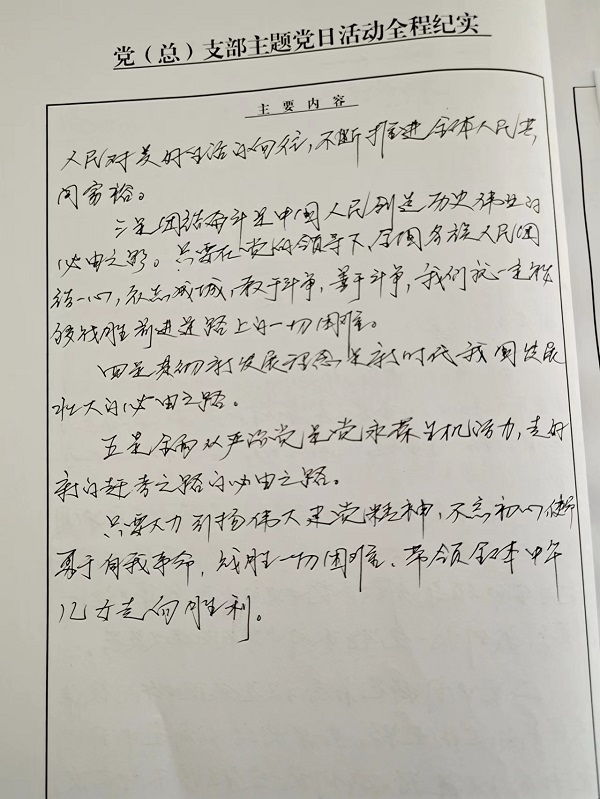 党（总）支部主题党日活动全程纪实
主要内容
人民对美好生活的向往，不断推进全体人民共
同富裕。
三是团结奋斗是中国人民创造历史伟业的
必由之路。只要在党的领导下全国各族人民团
结一心，众志成城，敢于斗争，善于斗争，我们就一定能
够战胜前进道路上的一切困难。
四是贯彻新发展理念是新时代我国发展
壮大的必由之路。
五是全面从严治党是党永葆生机活力，走好
新的赶考之路的必由之路。
只要大力弘扬伟大建党精神，不忘初心使命
勇于自我革命，战胜一切困难、带领全体中华
儿女走向胜利。